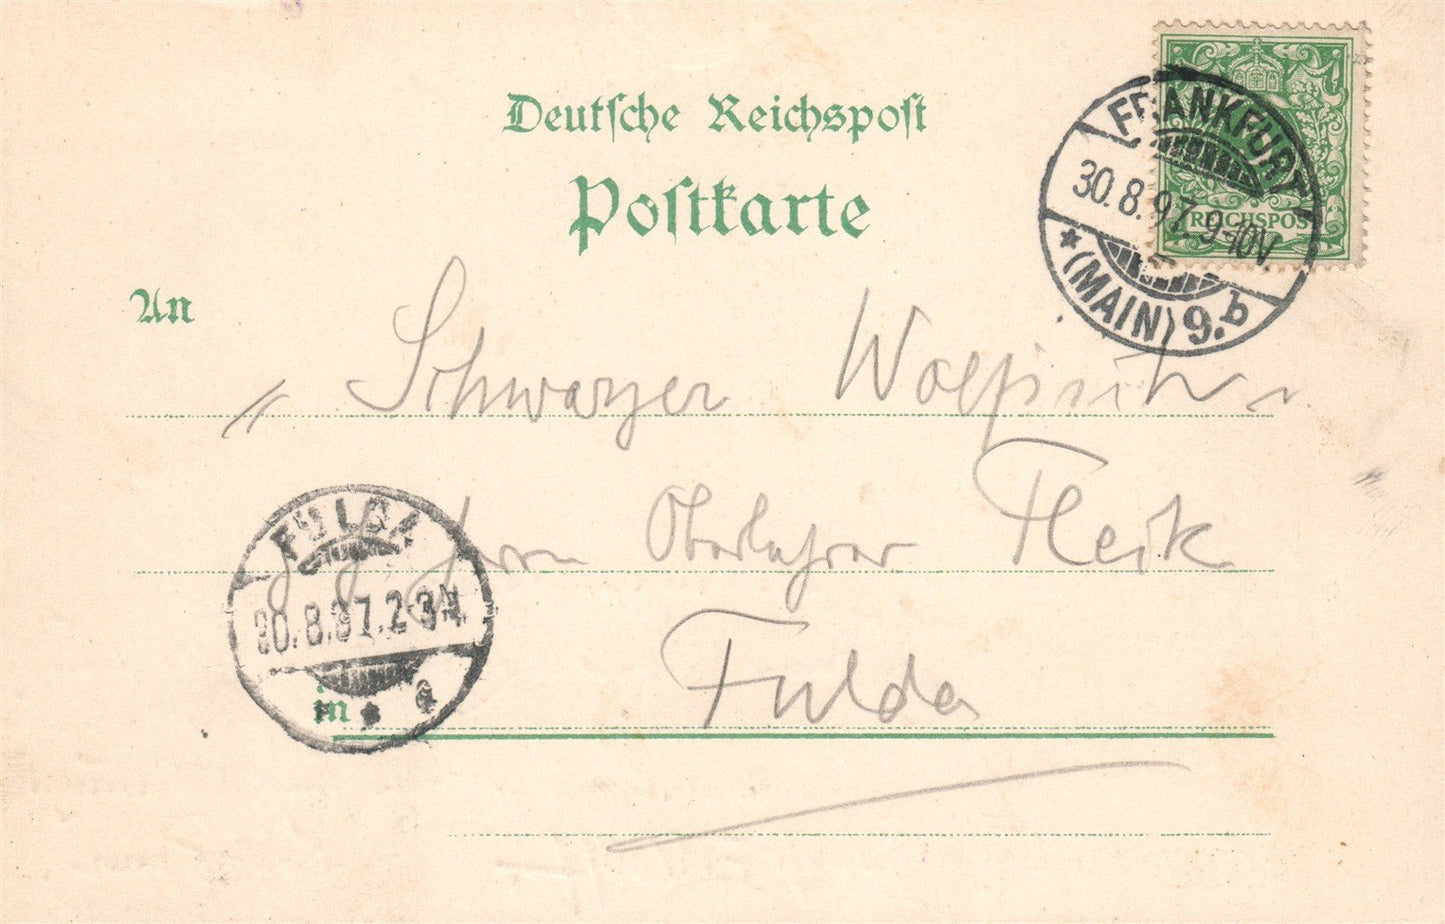 Deutsche Reichspost
Postkarte
FRANKFURT
30.8.97. 9-10V.
* (MAIN) 9.b
REICHSPOST
An
Schwarzer
Herrn Oberlehrer Fleck
FULDA
30.8.97. 2-3N.
in
Fulda